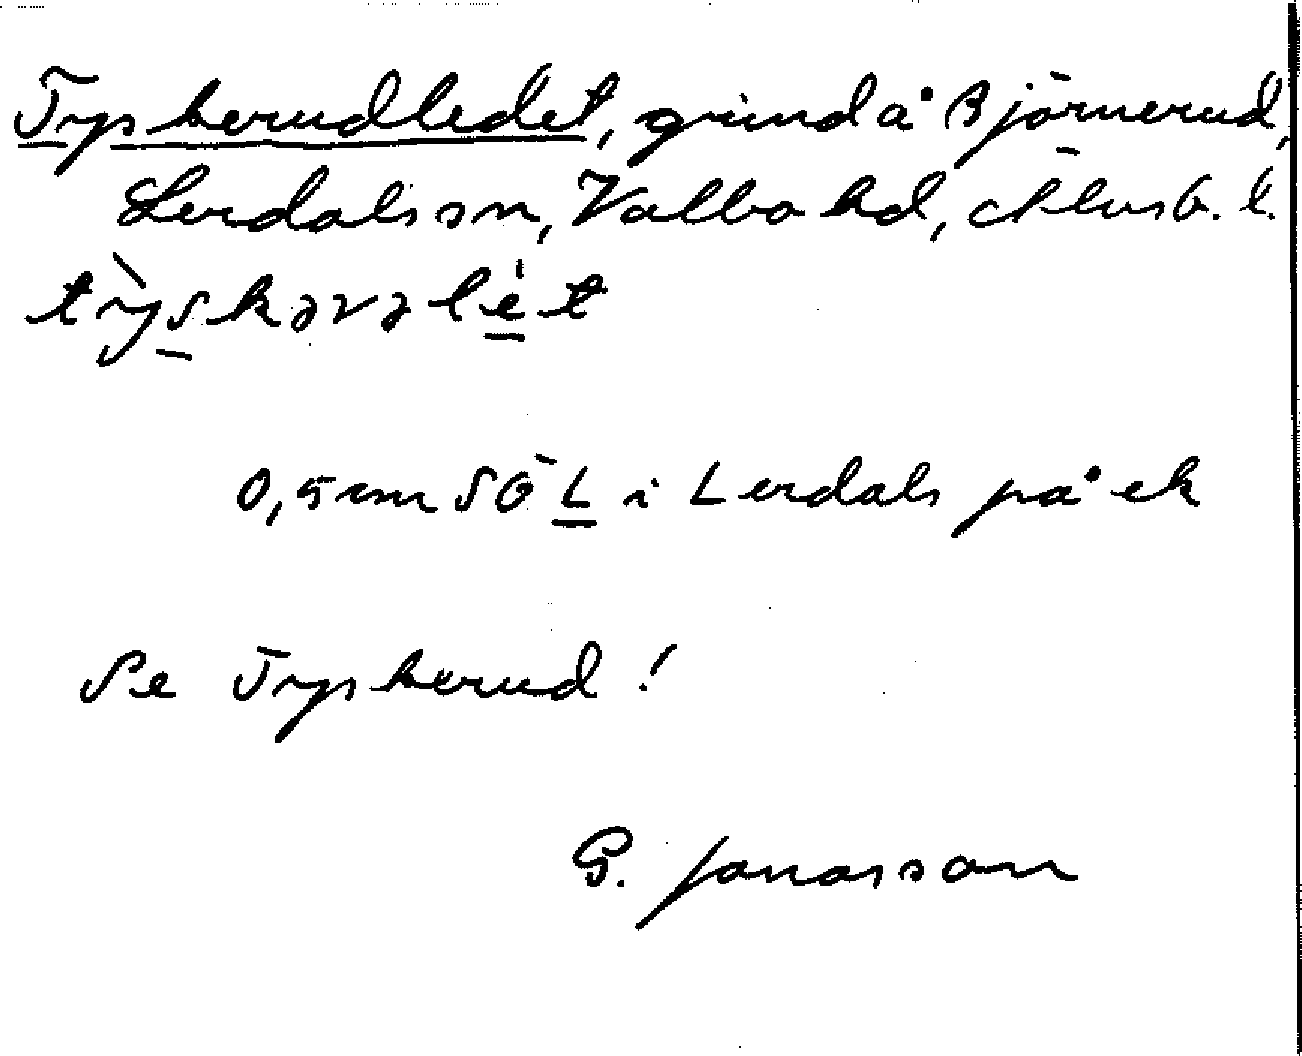 Tyskerudledet, grind å Björnerud,
Lerdals sn, Valbo hd, Älvsb. l.
tỳskəvəlét
0,5 cm SÖ L i Lerdals på ek
Se Tyskerud!
G. Jonasson